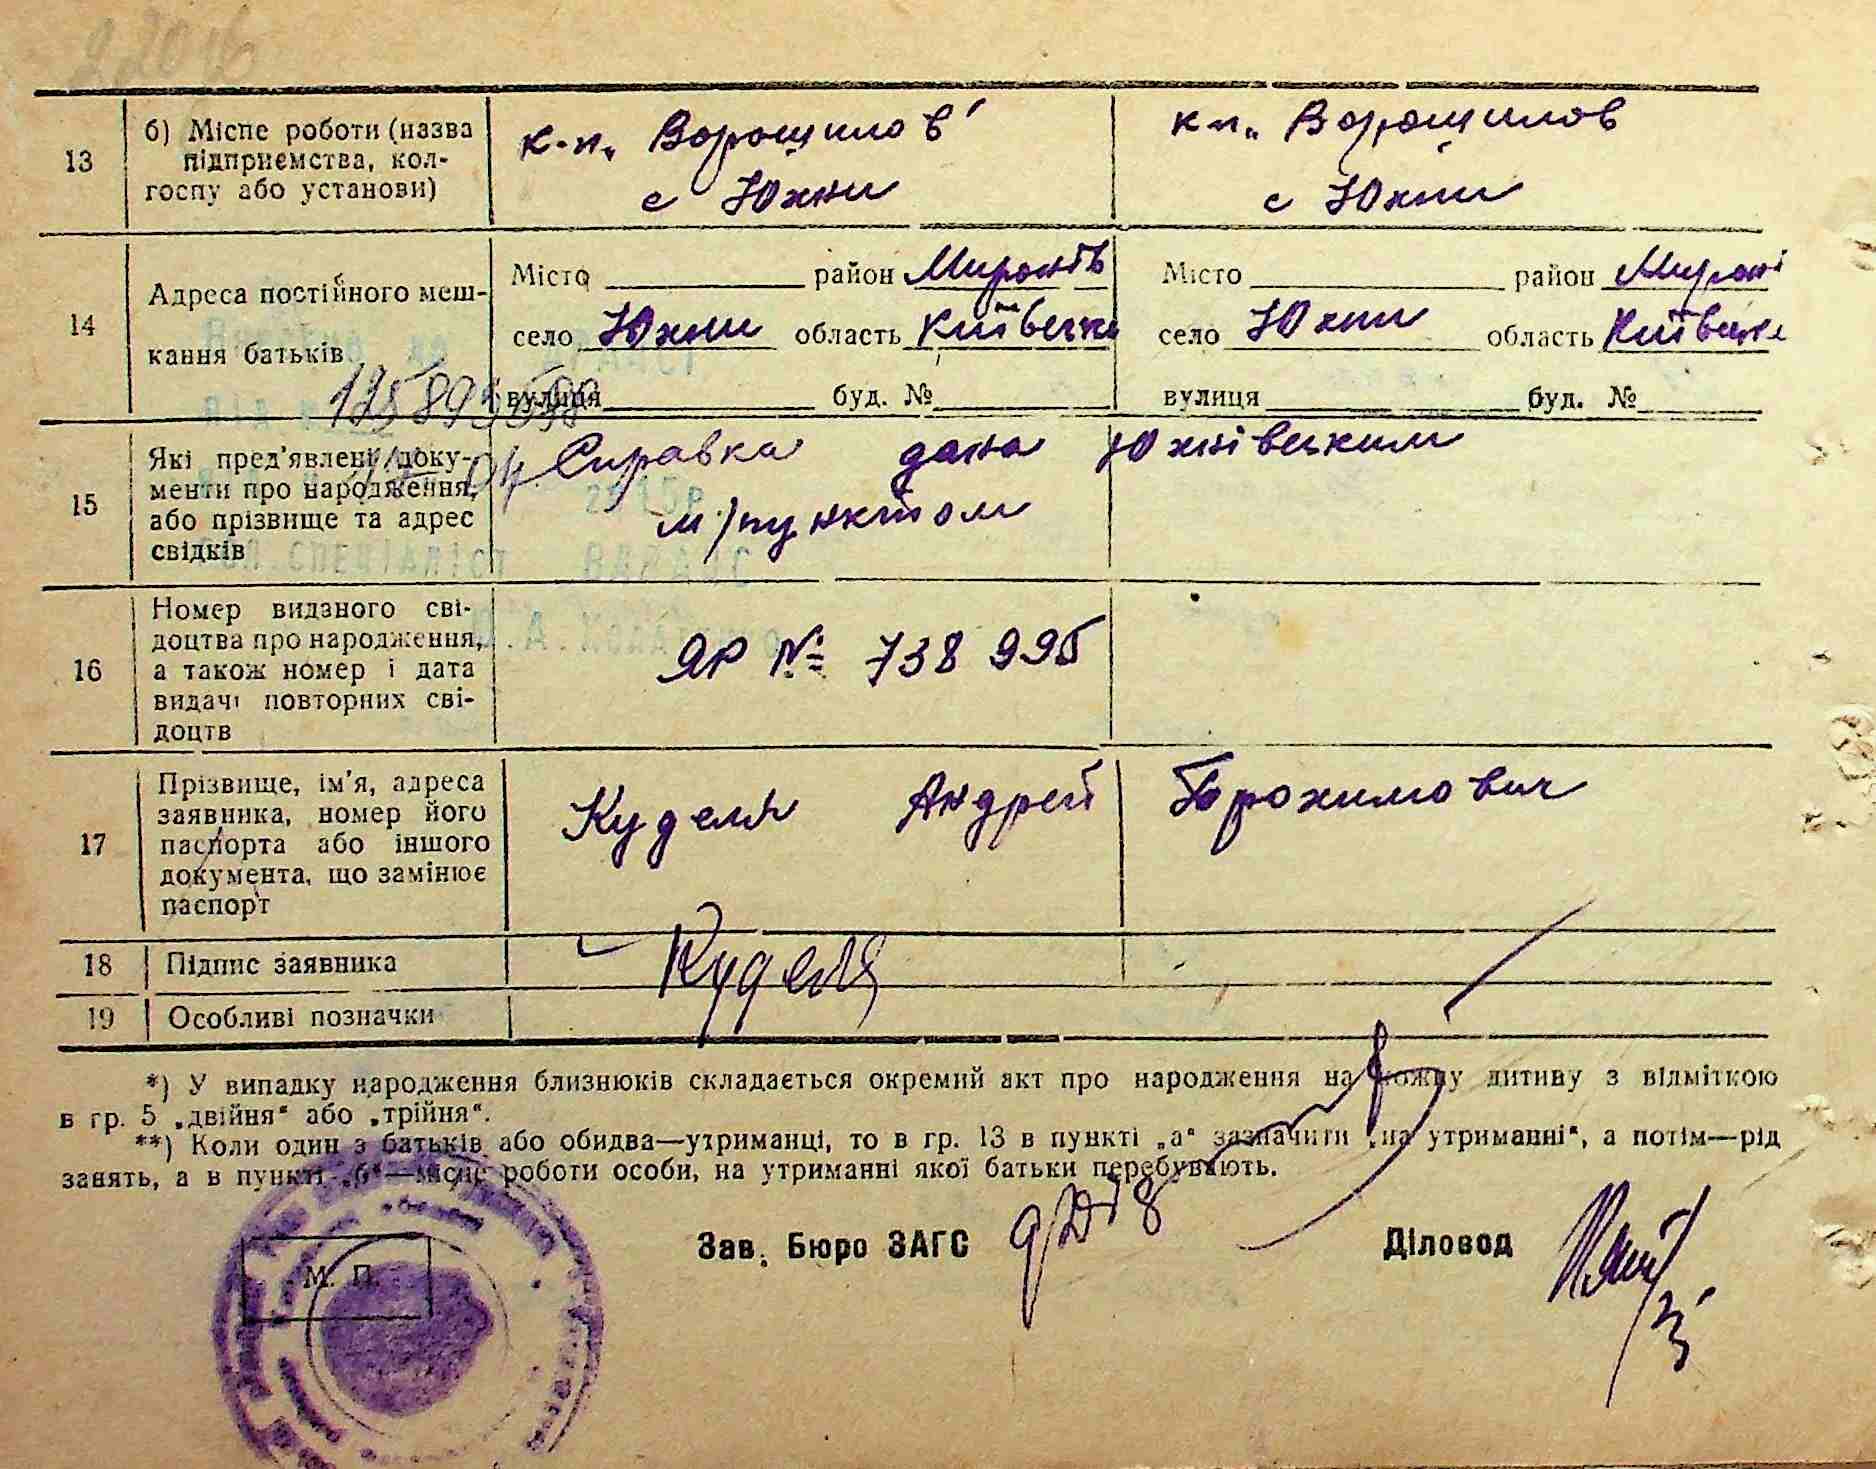 22016
13 б) Місце роботи (назва підприємства, колгоспу або установи)
к-п „Ворошилов"
с Юхни
к-п „Ворошилов
с Юхни
14 Адреса постійного мешкання батьків
Місто район Миронів
село Юхни область Київська
вулиця буд. №
Місто район Мироні
село Юхни область Київська
вулиця буд. №
15 Які пред'явлені документи про народження, або прізвище та адрес свідків
Справка дана Юхнівським
м/пунктом
16 Номер виданого свідоцтва про народження, а також номер і дата видачі повторних свідоцтв
ЯР № 738995
17 Прізвище, ім'я, адреса заявника, номер його паспорта або іншого документа, що замінює паспорт
Куделя Андрей Торохимович
18 Підпис заявника
Куделя
19 Особливі позначки
*) У випадку народження близнюків складається окремий акт про народження на кожну дитину з відміткою
в гр. 5 „двійня" або „трійня".
**) Коли один з батьків або обидва—утриманці, то в гр. 13 в пункті „а" зазначити „на утриманні", а потім—рід
занять, а в пункті „б"—місце роботи особи, на утриманні якої батьки перебувають.
М. П.
Зав. Бюро ЗАГС
Діловод